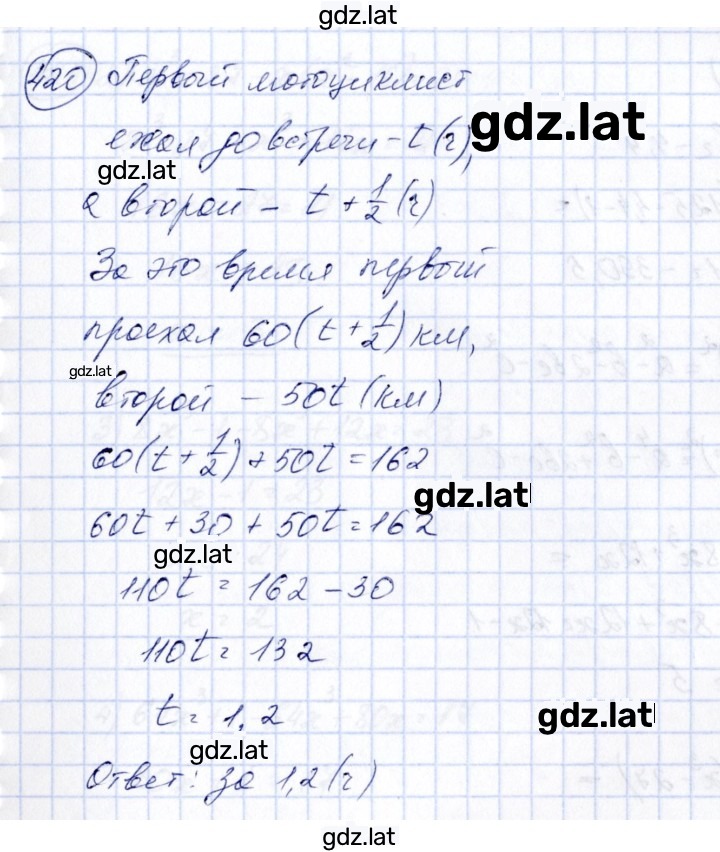 gdz.lat
420 Первый мотоциклист
ехал до встречи - t (ч),
gdz.lat
gdz.lat
а второй - t + 1/2 (ч)
За это время первый
проехал 60(t + 1/2) км,
gdz.lat
второй - 50t (км)
60(t + 1/2) + 50t = 162
gdz.lat
60t + 30 + 50t = 162
gdz.lat
110t = 162 - 30
110t = 132
t = 1,2
gdz.lat
gdz.lat
Ответ: за 1,2 (ч)
gdz.lat